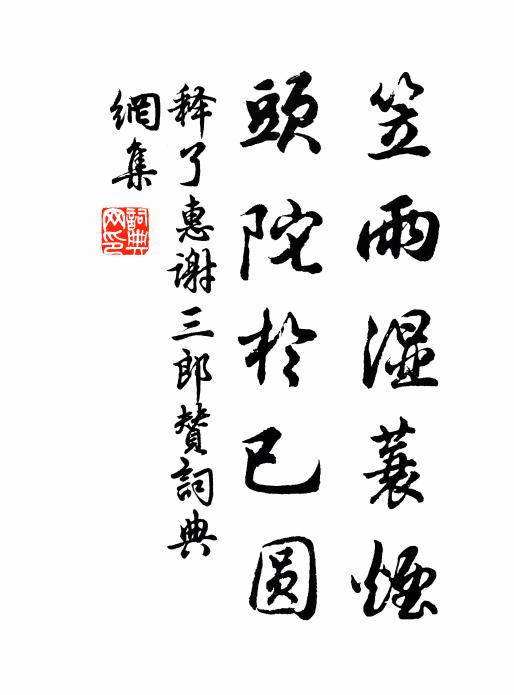 笠雨湿蓑煙
頭陀於已圓
释了惠謝三郎賛詞典
網集
詞典网印